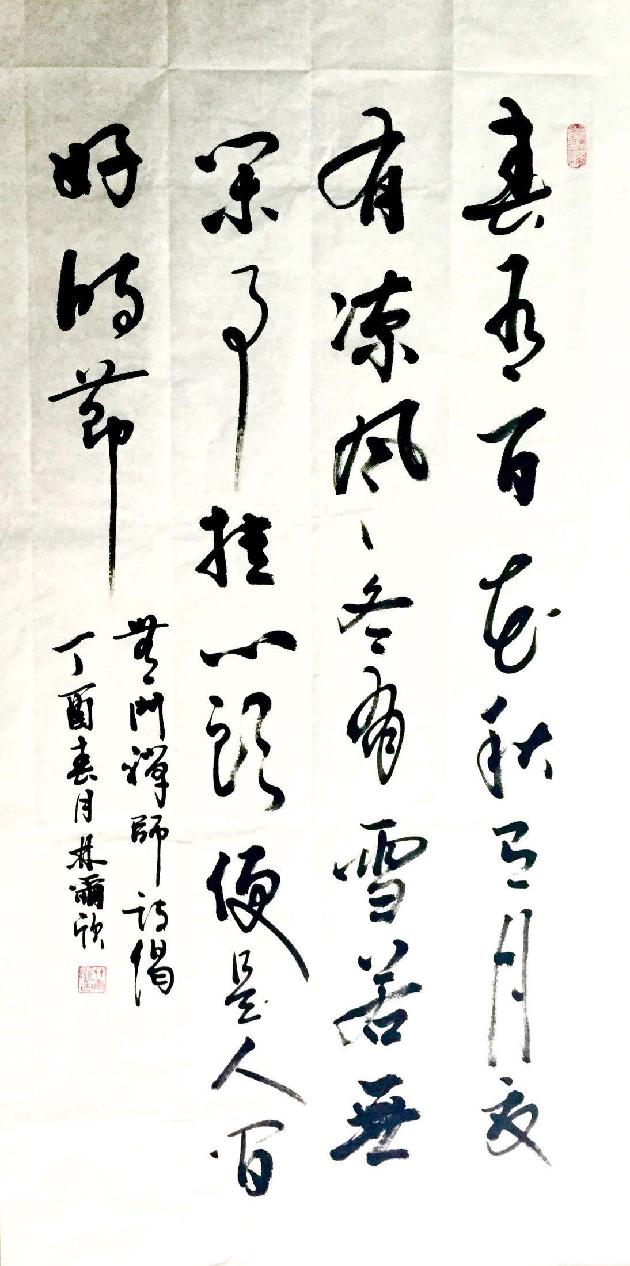 春有百花秋有月夏
有涼風冬有雪若無
閑事挂心頭便是人間
好時節
無門禪師詩偈
丁酉春月林爾欣